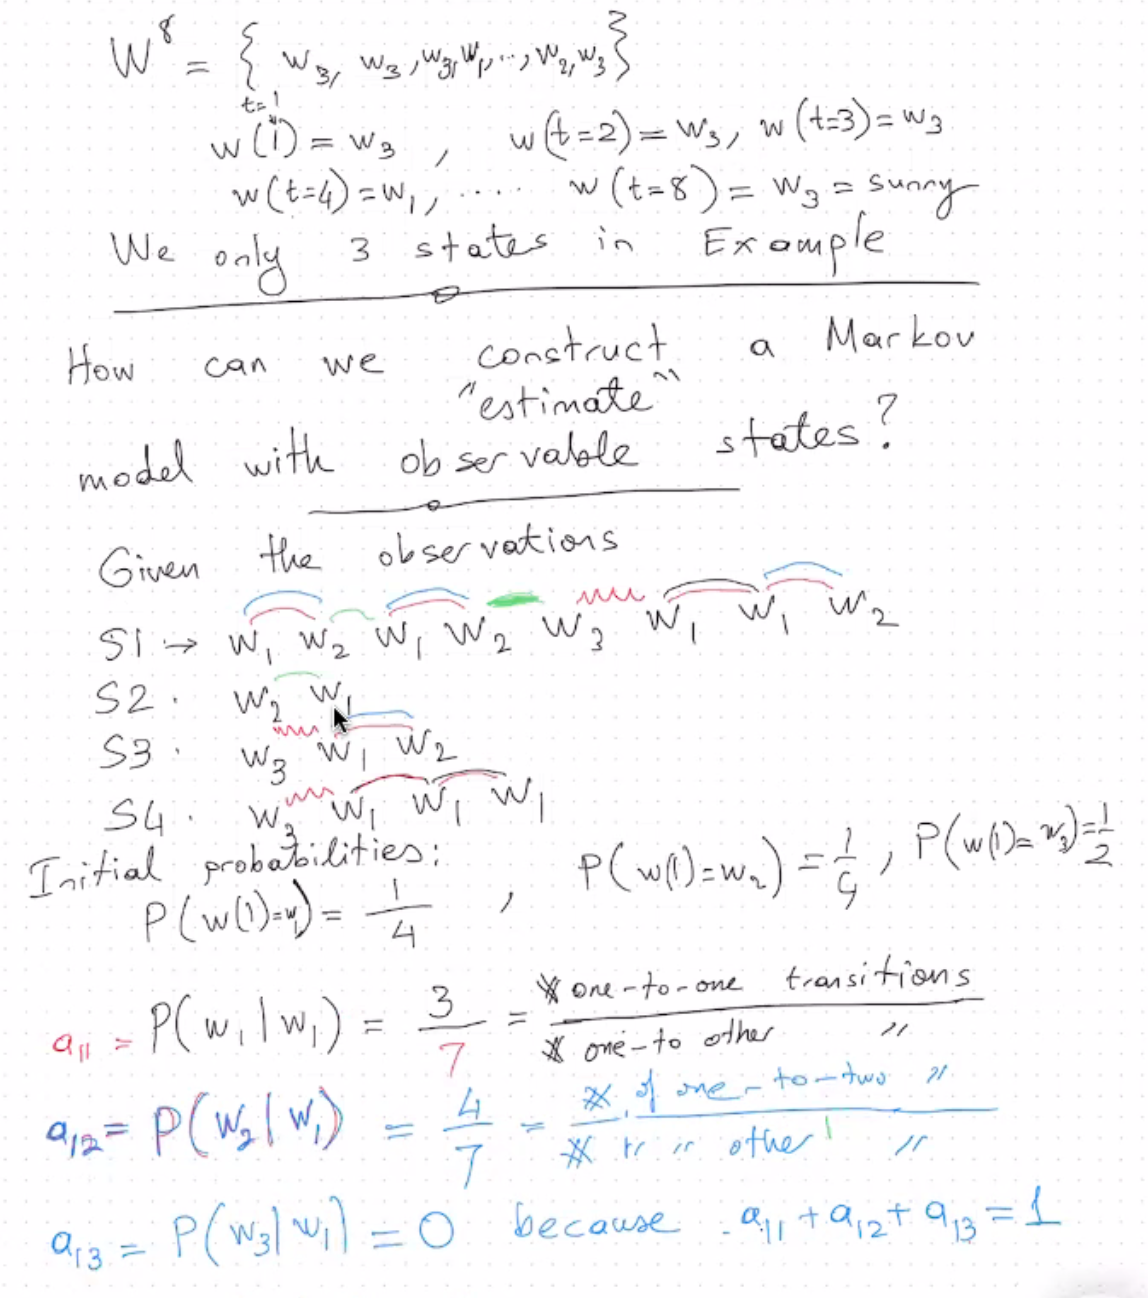 W⁸ = { w₃, w₃, w₃, w₁, .., w₂, w₃ }
t=1
w(1) = w₃ , w(t=2) = w₃, w(t=3) = w₃
w(t=4) = w₁, .... w(t=8) = w₃ = sunny
We only 3 states in Example
How can we construct a Markov
"estimate"
model with observable states?
Given the observations
S1 → w₁ w₂ w₁ w₂ w₃ w₁ w₁ w₂
S2 . w₂ w₁
S3 . w₃ w₁ w₂
S4 . w₃ w₁ w₁ w₁
Initial probabilities:
P(w(1)=w₁) = 1/4 , P(w(1)=w₂) = 1/4 , P(w(1)=w₃) = 1/2
a₁₁ = P(w₁|w₁) = 3/7 = # one-to-one transitions / # one-to other "
a₁₂ = P(w₂|w₁) = 4/7 = # of one-to-two " / # " " other "
a₁₃ = P(w₃|w₁) = 0 because a₁₁ + a₁₂ + a₁₃ = 1